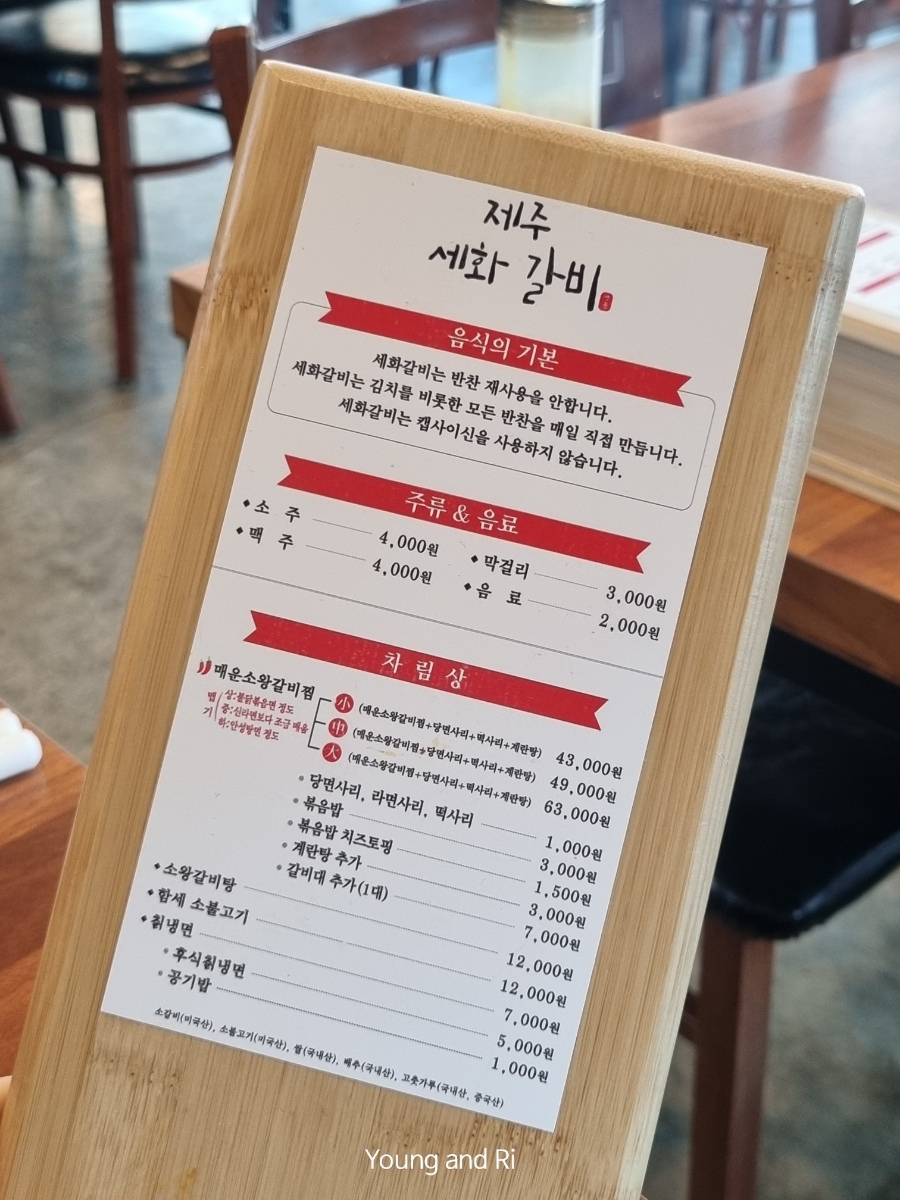 제주
세화 갈비
음식의 기본
세화갈비는 반찬 재사용을 안합니다.
세화갈비는 김치를 비롯한 모든 반찬을 매일 직접 만듭니다.
세화갈비는 캡사이신을 사용하지 않습니다.
주류 & 음료
소 주 4,000원
맥 주 4,000원
막걸리 3,000원
음 료 2,000원
차 림 상
매운소왕갈비찜
맵기
상:불닭볶음면 정도
중:신라면보다 조금 매움
하:안성탕면 정도
小 (매운소왕갈비찜+당면사리+떡사리+계란탕) 43,000원
中 (매운소왕갈비찜+당면사리+떡사리+계란탕) 49,000원
大 (매운소왕갈비찜+당면사리+떡사리+계란탕) 63,000원
당면사리, 라면사리, 떡사리 1,000원
볶음밥 3,000원
볶음밥 치즈토핑 1,500원
계란탕 추가 3,000원
갈비대 추가(1대) 7,000원
소왕갈비탕 12,000원
함세 소불고기 12,000원
칡냉면 7,000원
후식칡냉면 5,000원
공기밥 1,000원
소갈비(미국산), 소불고기(미국산), 쌀(국내산), 배추(국내산), 고춧가루(국내산, 중국산)
Young and Ri